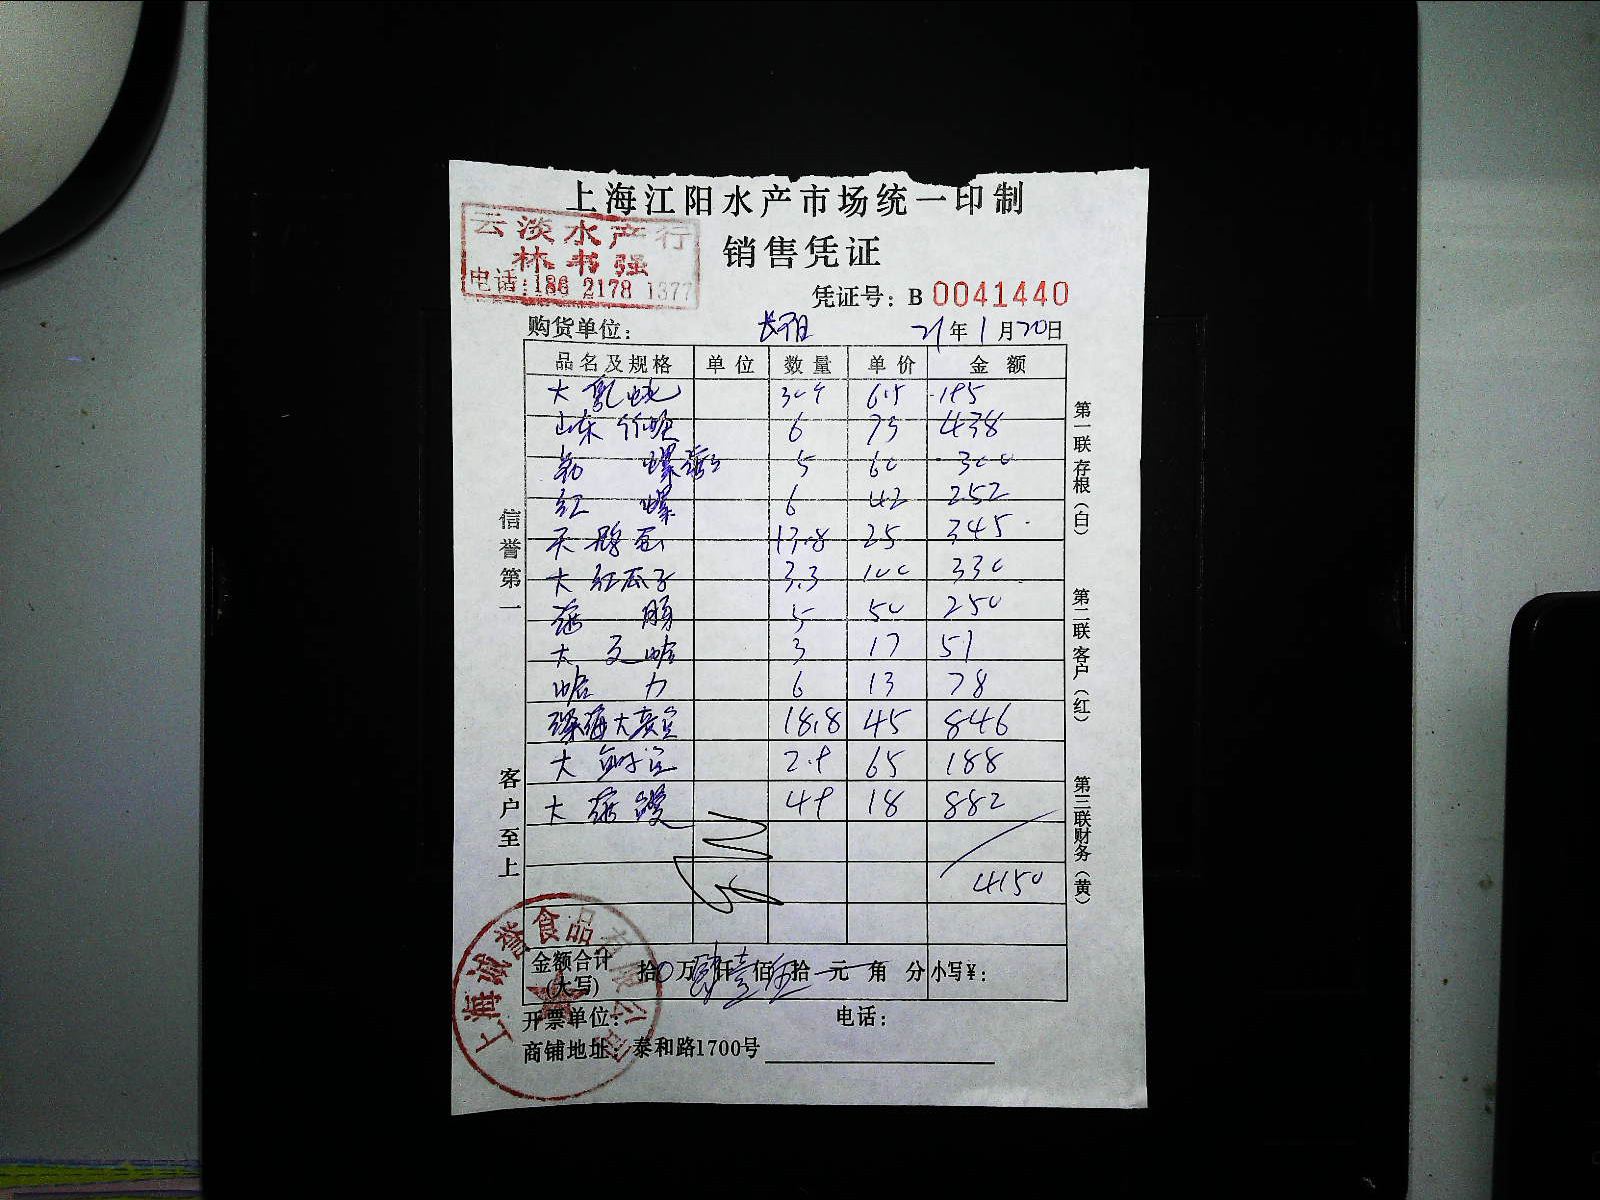 上海江阳水产市场统一印制
云淡水产行
林书强
电话:186 2178 1377
销售凭证
凭证号: B 0041440
购货单位: 21年1月20日
品名及规格 单位 数量 单价 金额
大 6.5 195
山东 6 73 438
螺 5 60 300
红螺 6 42 252
13.8 25 345
大红瓜子 3.3 100 330
肠 5 50 250
大文哈 3 17 51
哈力 6 13 78
深海大 18.8 45 846
大 2.9 65 188
大 49 18 882
4150
金额合计(大写) 拾0万肆仟壹佰伍拾元角分 小写¥:
开票单位: 电话:
商铺地址: 泰和路1700号
信誉第一
客户至上
第一联存根(白)
第二联客户(红)
第三联财务(黄)
上海诚誉食品有限公司